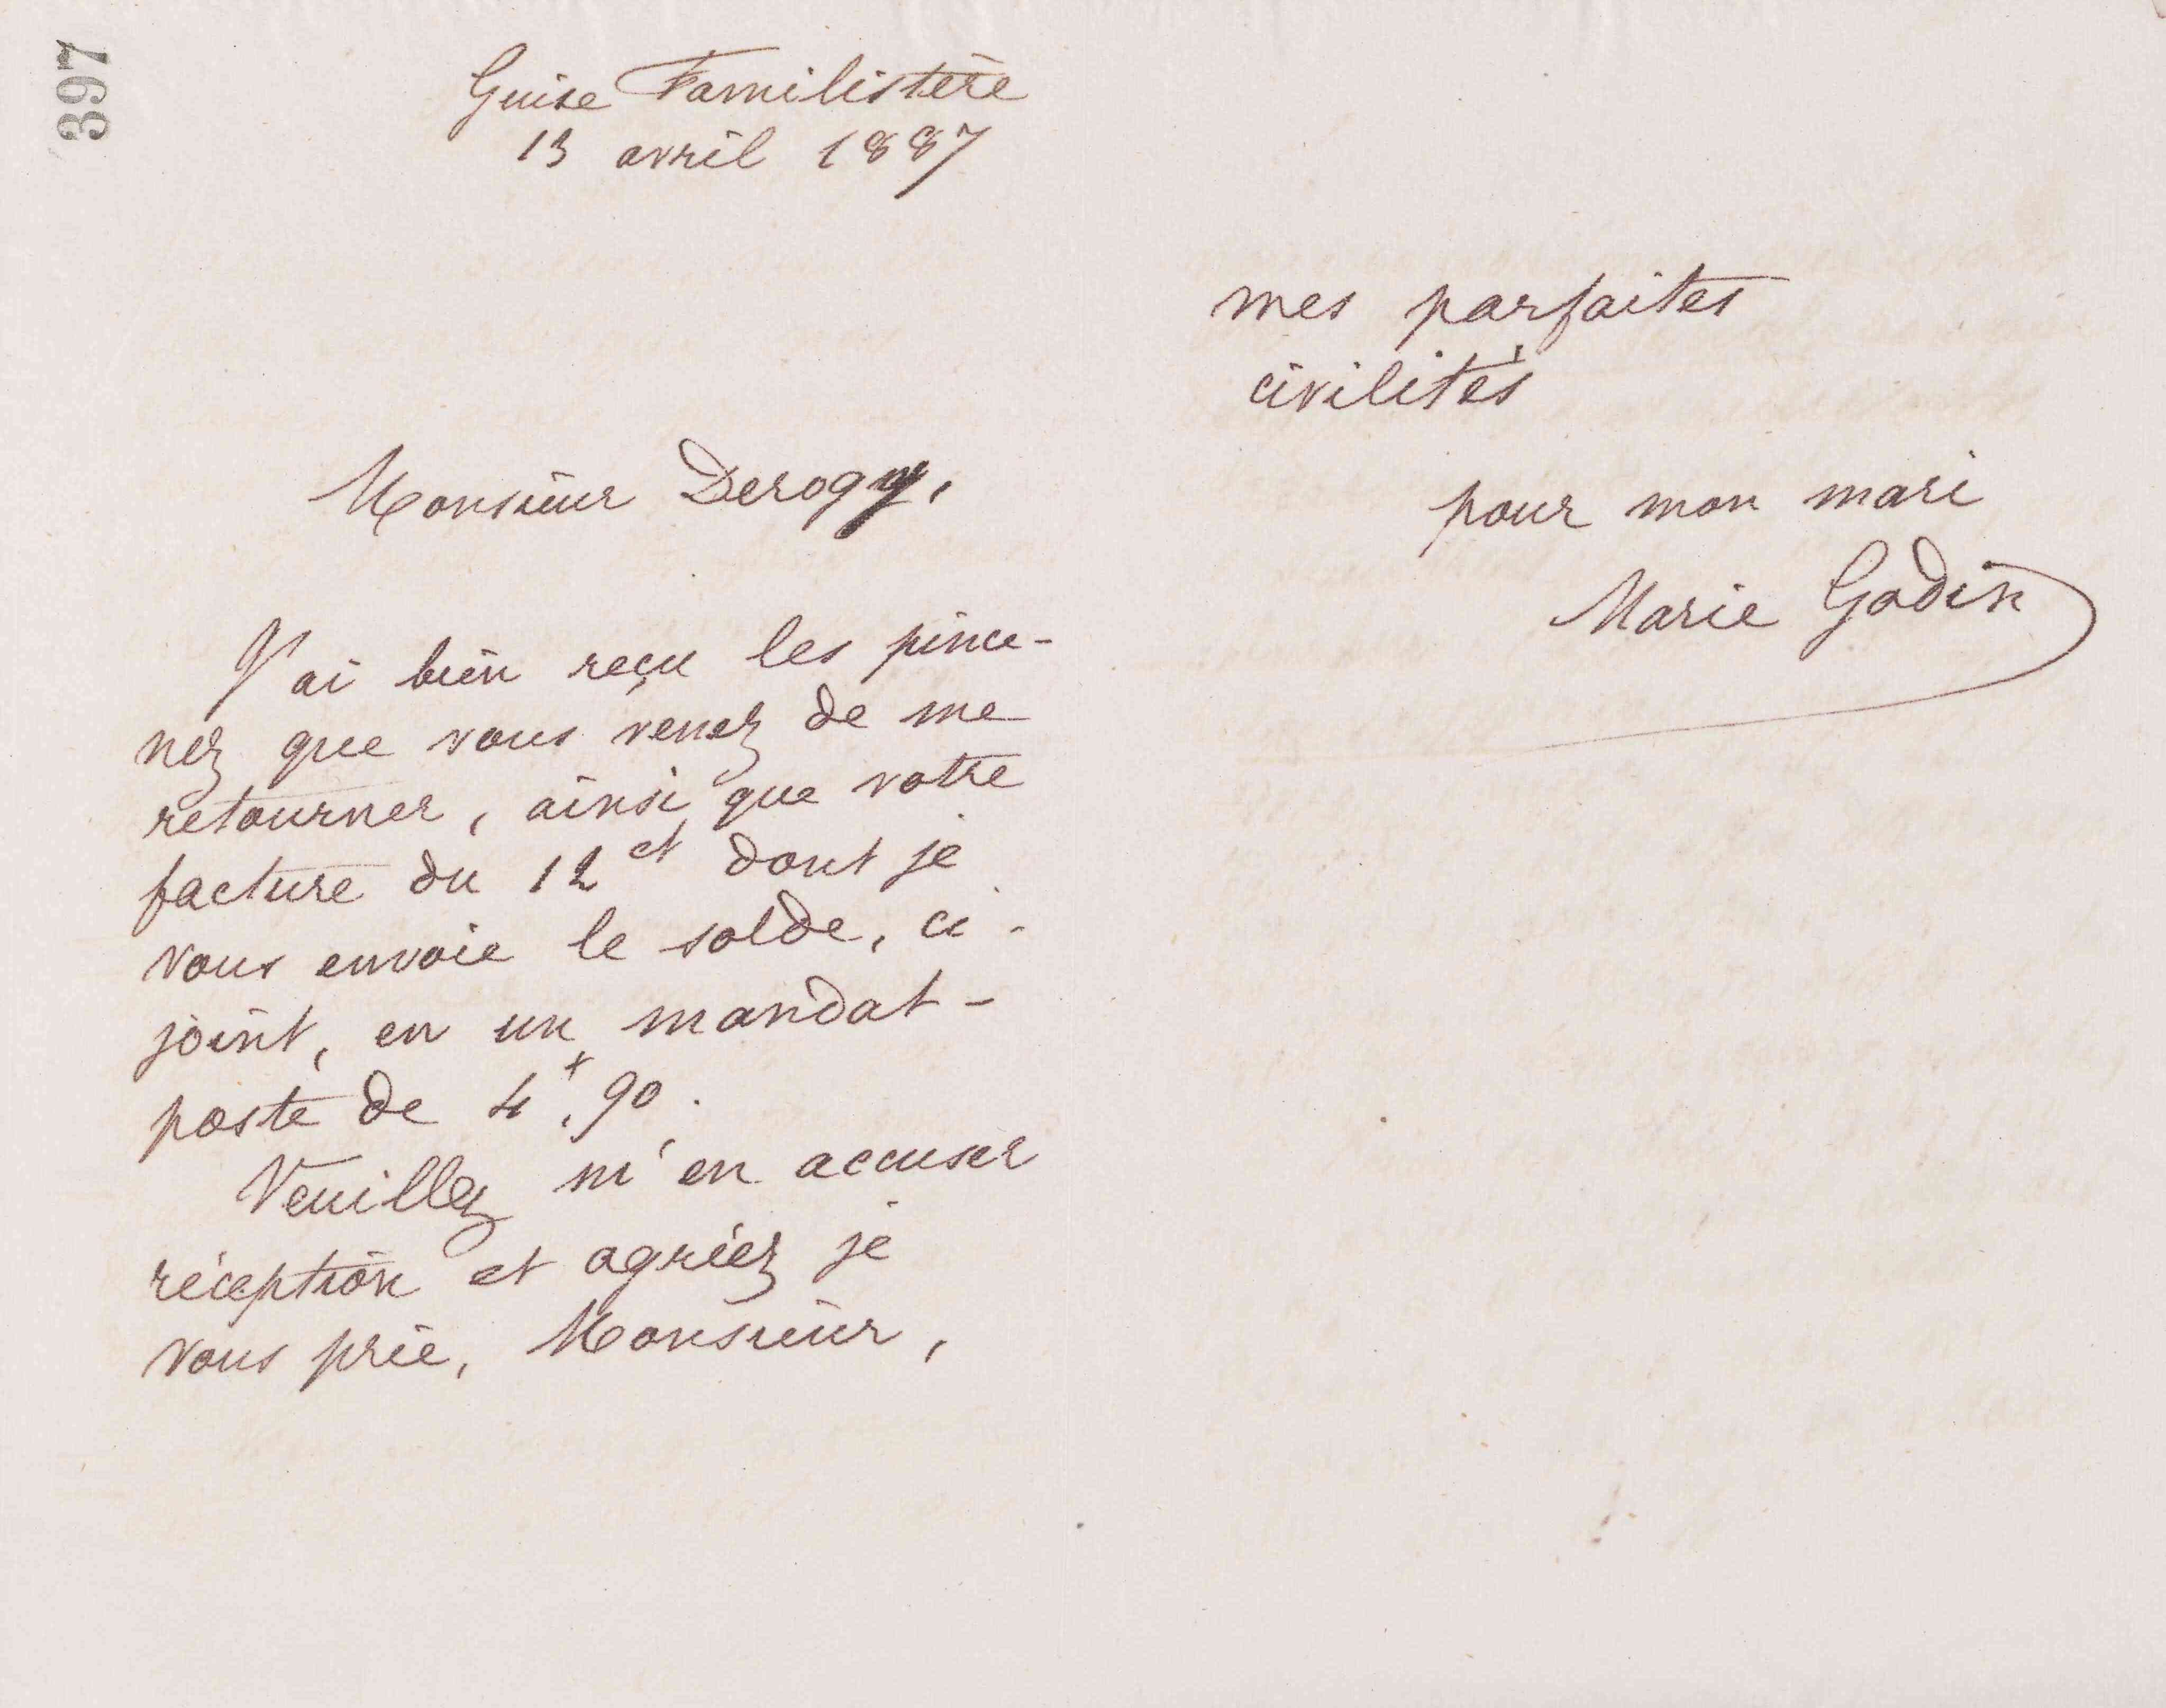 397
Guise Familistère
13 avril 1887
Monsieur Derogy,
J'ai bien reçu les pince-
nez que vous venez de me
retourner, ainsi que votre
facture du 12 ct dont je
vous envoie le solde, ci-
joint, en un mandat-
poste de 4f,90.
Veuillez m'en accuser
réception et agréez je
vous prie, Monsieur,
mes parfaites
civilités
pour mon mari
Marie Godin